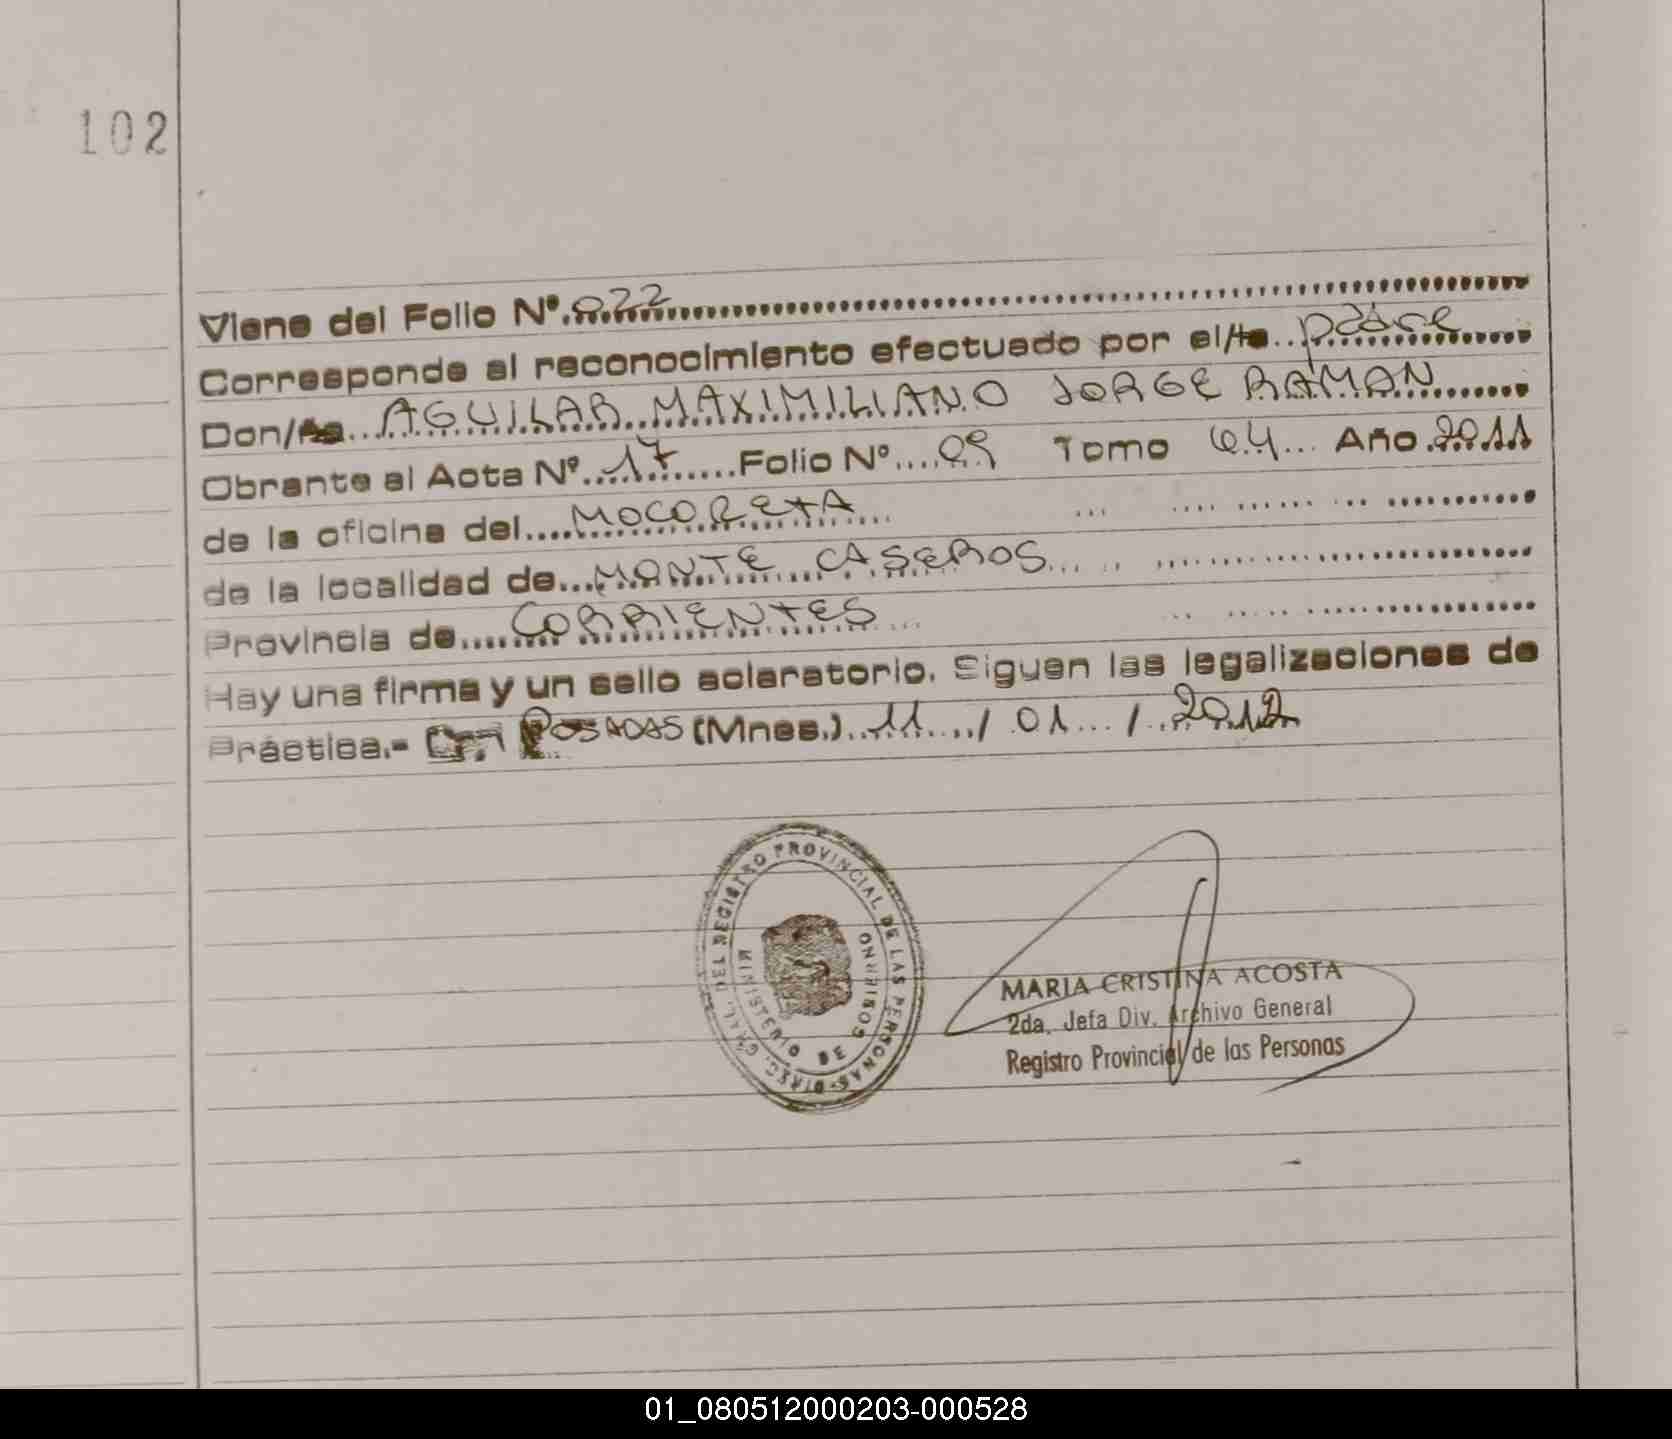 102
Viene del Folio Nº. 022
Corresponde al reconocimiento efectuado por el/la... padre
Don/ña... AGUILAR MAXIMILIANO JORGE RAMAN
Obrante al Acta Nº. 17 Folio Nº 09 Tomo 64 Año 2011
de la oficina del.... MOCORETA
de la localidad de... MONTE CASEROS
Provincia de..... CORRIENTES
Hay una firma y un sello aclaratorio. Siguen las legalizaciones de
Práctica.- POSADAS (Mnes.) 11 / 01 / 2012
DIREC. GRAL. DEL REGISTRO PROVINCIAL DE LAS PERSONAS
MINISTERIO DE GOBIERNO
MARIA CRISTINA ACOSTA
2da. Jefa Div. Archivo General
Registro Provincial de las Personas
01_080512000203-000528